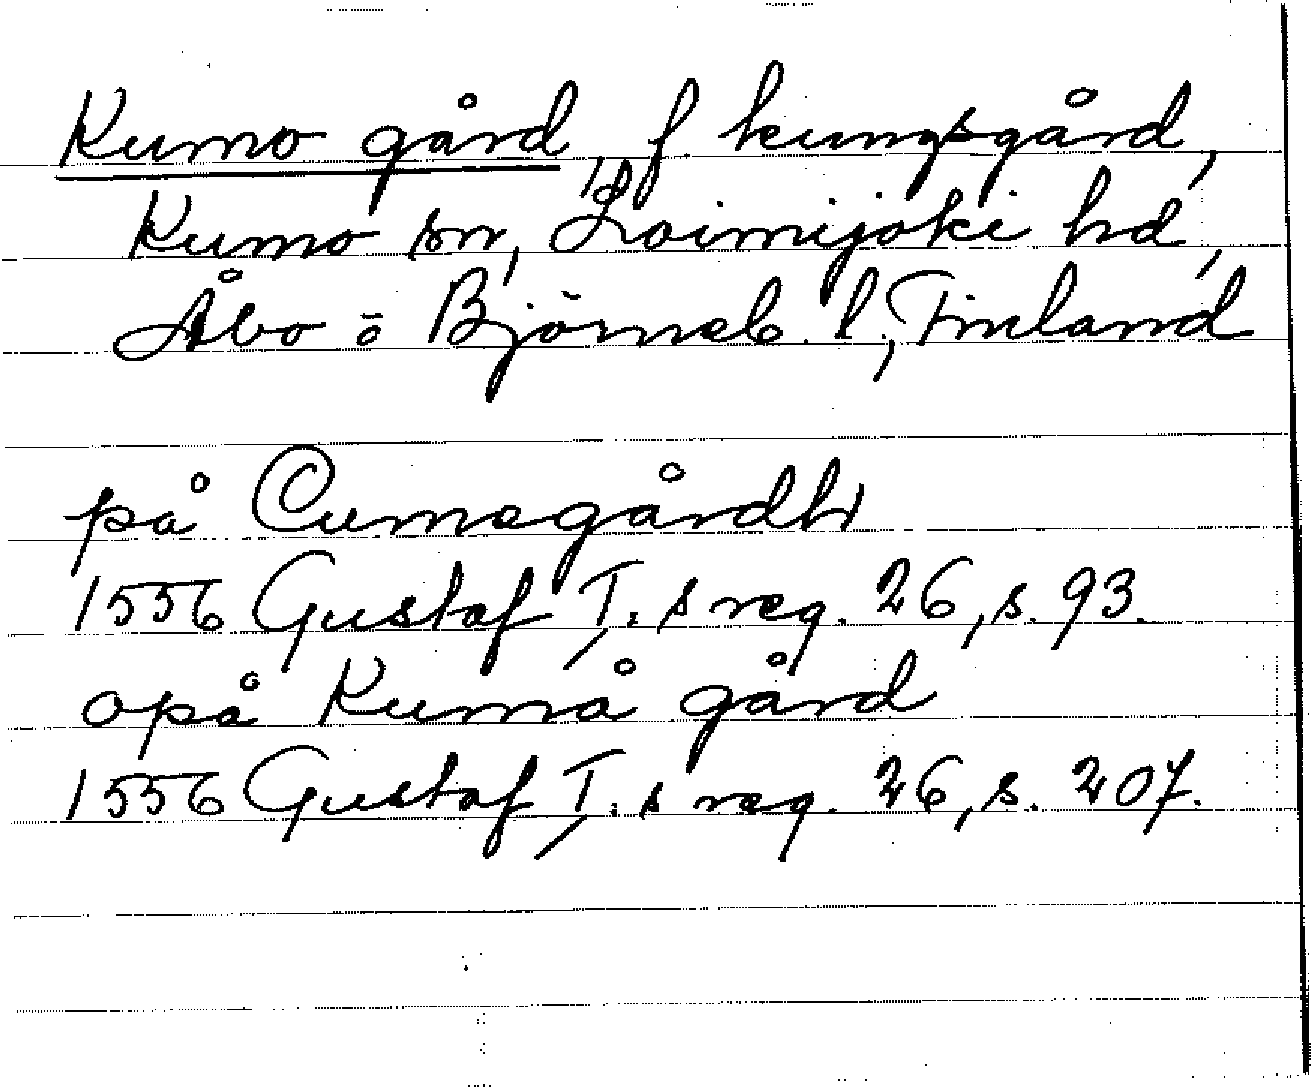 Kumo gård, f. kungsgård,
Kumo sn, Loimijoki hd,
Åbo o Björneb. l, Finland
på Cumegårdh
1556 Gustaf I:s reg. 26, s. 93.
opå Kumå gård
1556 Gustaf I:s reg. 26, s. 207.